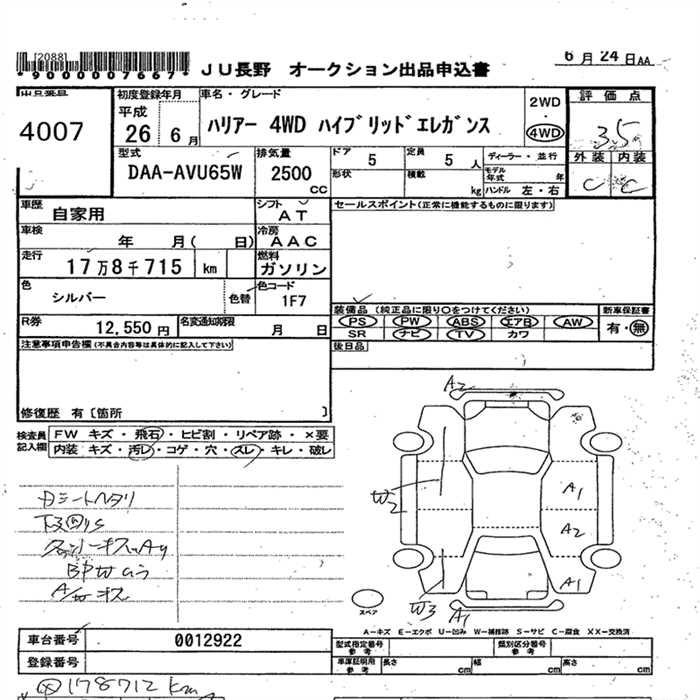 [2088]
*9000007667*
JU長野 オークション出品申込書
6月24日AA
出品番号 初度登録年月 車名・グレード 2WD 評価点
4007 平成 26 6月 ハリアー 4WD ハイブリッドエレガンス 4WD 3.5
外装 内装
C C
型式 DAA-AVU65W 排気量 2500 CC ドア 5 定員 5人 ディーラー・並行
形状 積載 kg モデル年式 年
ハンドル 左・右
車歴 自家用 シフト AT セールスポイント(正常に機能するものに限ります)
車検 年 月( 日) 冷房 AAC
走行 17万8千715 km 燃料 ガソリン
色 シルバー 色替 色コード 1F7
装備品 (純正品に限り○をつけてください) 新車保証書
PS PW ABS エアB AW 有・無
SR ナビ TV カワ
R券 12,550円 名変通知期限 月 日
後日品
注意事項申告欄(不具合内容等は具体的に記入して下さい)
修復歴 有〔箇所 〕
検査員記入欄 FW キズ・飛石・ヒビ割・リペア跡・×要
内装 キズ・汚レ・コゲ・穴・スレ・キレ・破レ
A2
W2
A1
A2
A1
W3
A1
スペア
Dシートヘタリ
下回りS
A-キズ E-エクボ U-凹み W-補修跡 S-サビ C-腐食 XX-交換済
車台番号 0012922
登録番号
型式指定番号 参考 類別区分番号 参考
車庫証明用 参考 長さ cm 幅 cm 高さ cm
178712 km